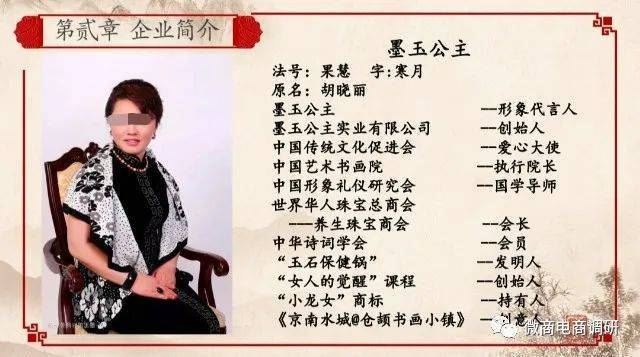 第贰章 企业简介
墨玉公主
法号：果慧 字:寒月
原名：胡晓丽
墨玉公主 --形象代言人
墨玉公主实业有限公司 --创始人
中国传统文化促进会 --爱心大使
中国艺术书画院 --执行院长
中国形象礼仪研究会 --国学导师
世界华人珠宝总商会
---养生珠宝商会 --会长
中华诗词学会 --会员
“玉石保健锅” --发明人
“女人的觉醒”课程 --创始人
“小龙女”商标 --持有人
《京南水城@仓颉书画小镇》 --创意人
微商电商调研